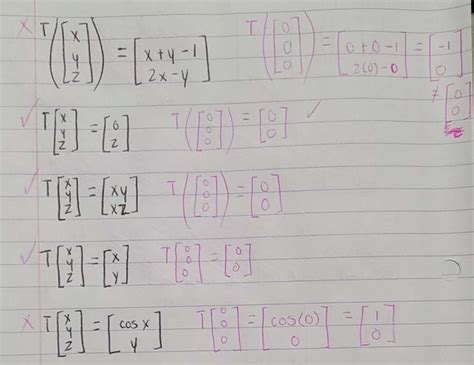 ✗ T([x y z]) = [x+y-1 2x-y] T([0 0 0]) = [0+0-1 2(0)-0] = [-1 0]
≠ [0 0]
✓ T[x y z] = [0 z] T([0 0 0]) = [0 0] ✓
✓ T[x y z] = [xy xz] T([0 0 0]) = [0 0]
✓ T[x y z] = [x y] T[0 0 0] = [0 0]
x T[x y z] = [cos x y] T[0 0 0] = [cos(0) 0] = [1 0]